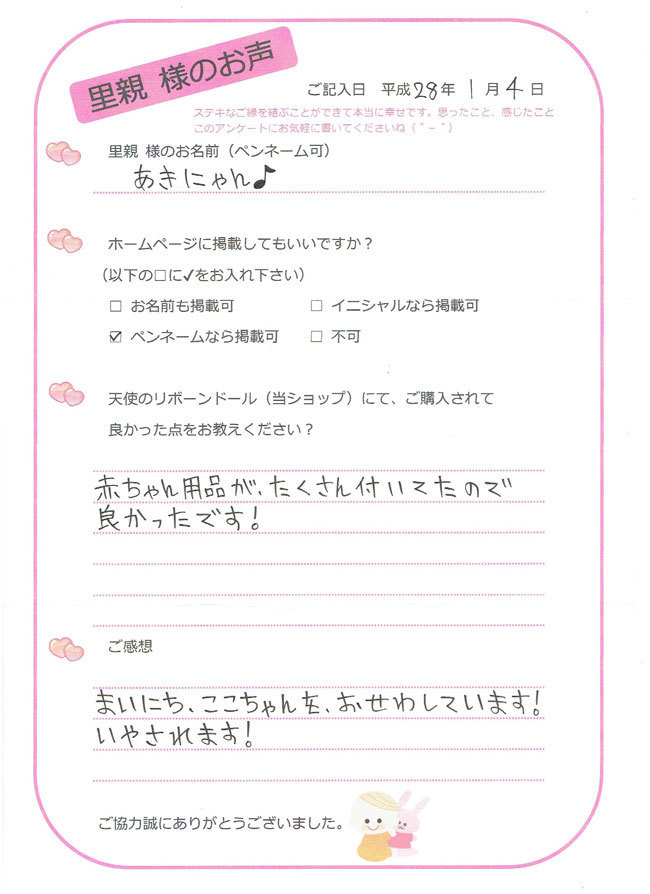 里親 様のお声
ご記入日 平成28年 1月4日
ステキなご縁を結ぶことができて本当に幸せです。思ったこと、感じたこと
このアンケートにお気軽に書いてくださいね（＾－＾）
里親 様のお名前（ペンネーム可）
あきにゃん♪
ホームページに掲載してもいいですか？
（以下の□に✓をお入れ下さい）
□ お名前も掲載可 □ イニシャルなら掲載可
☑ ペンネームなら掲載可 □ 不可
天使のリボーンドール（当ショップ）にて、ご購入されて
良かった点をお教えください？
赤ちゃん用品が、たくさん付いてたので
良かったです!
ご感想
まいにち、ここちゃんを、おせわしています!
いやされます!
ご協力誠にありがとうございました。